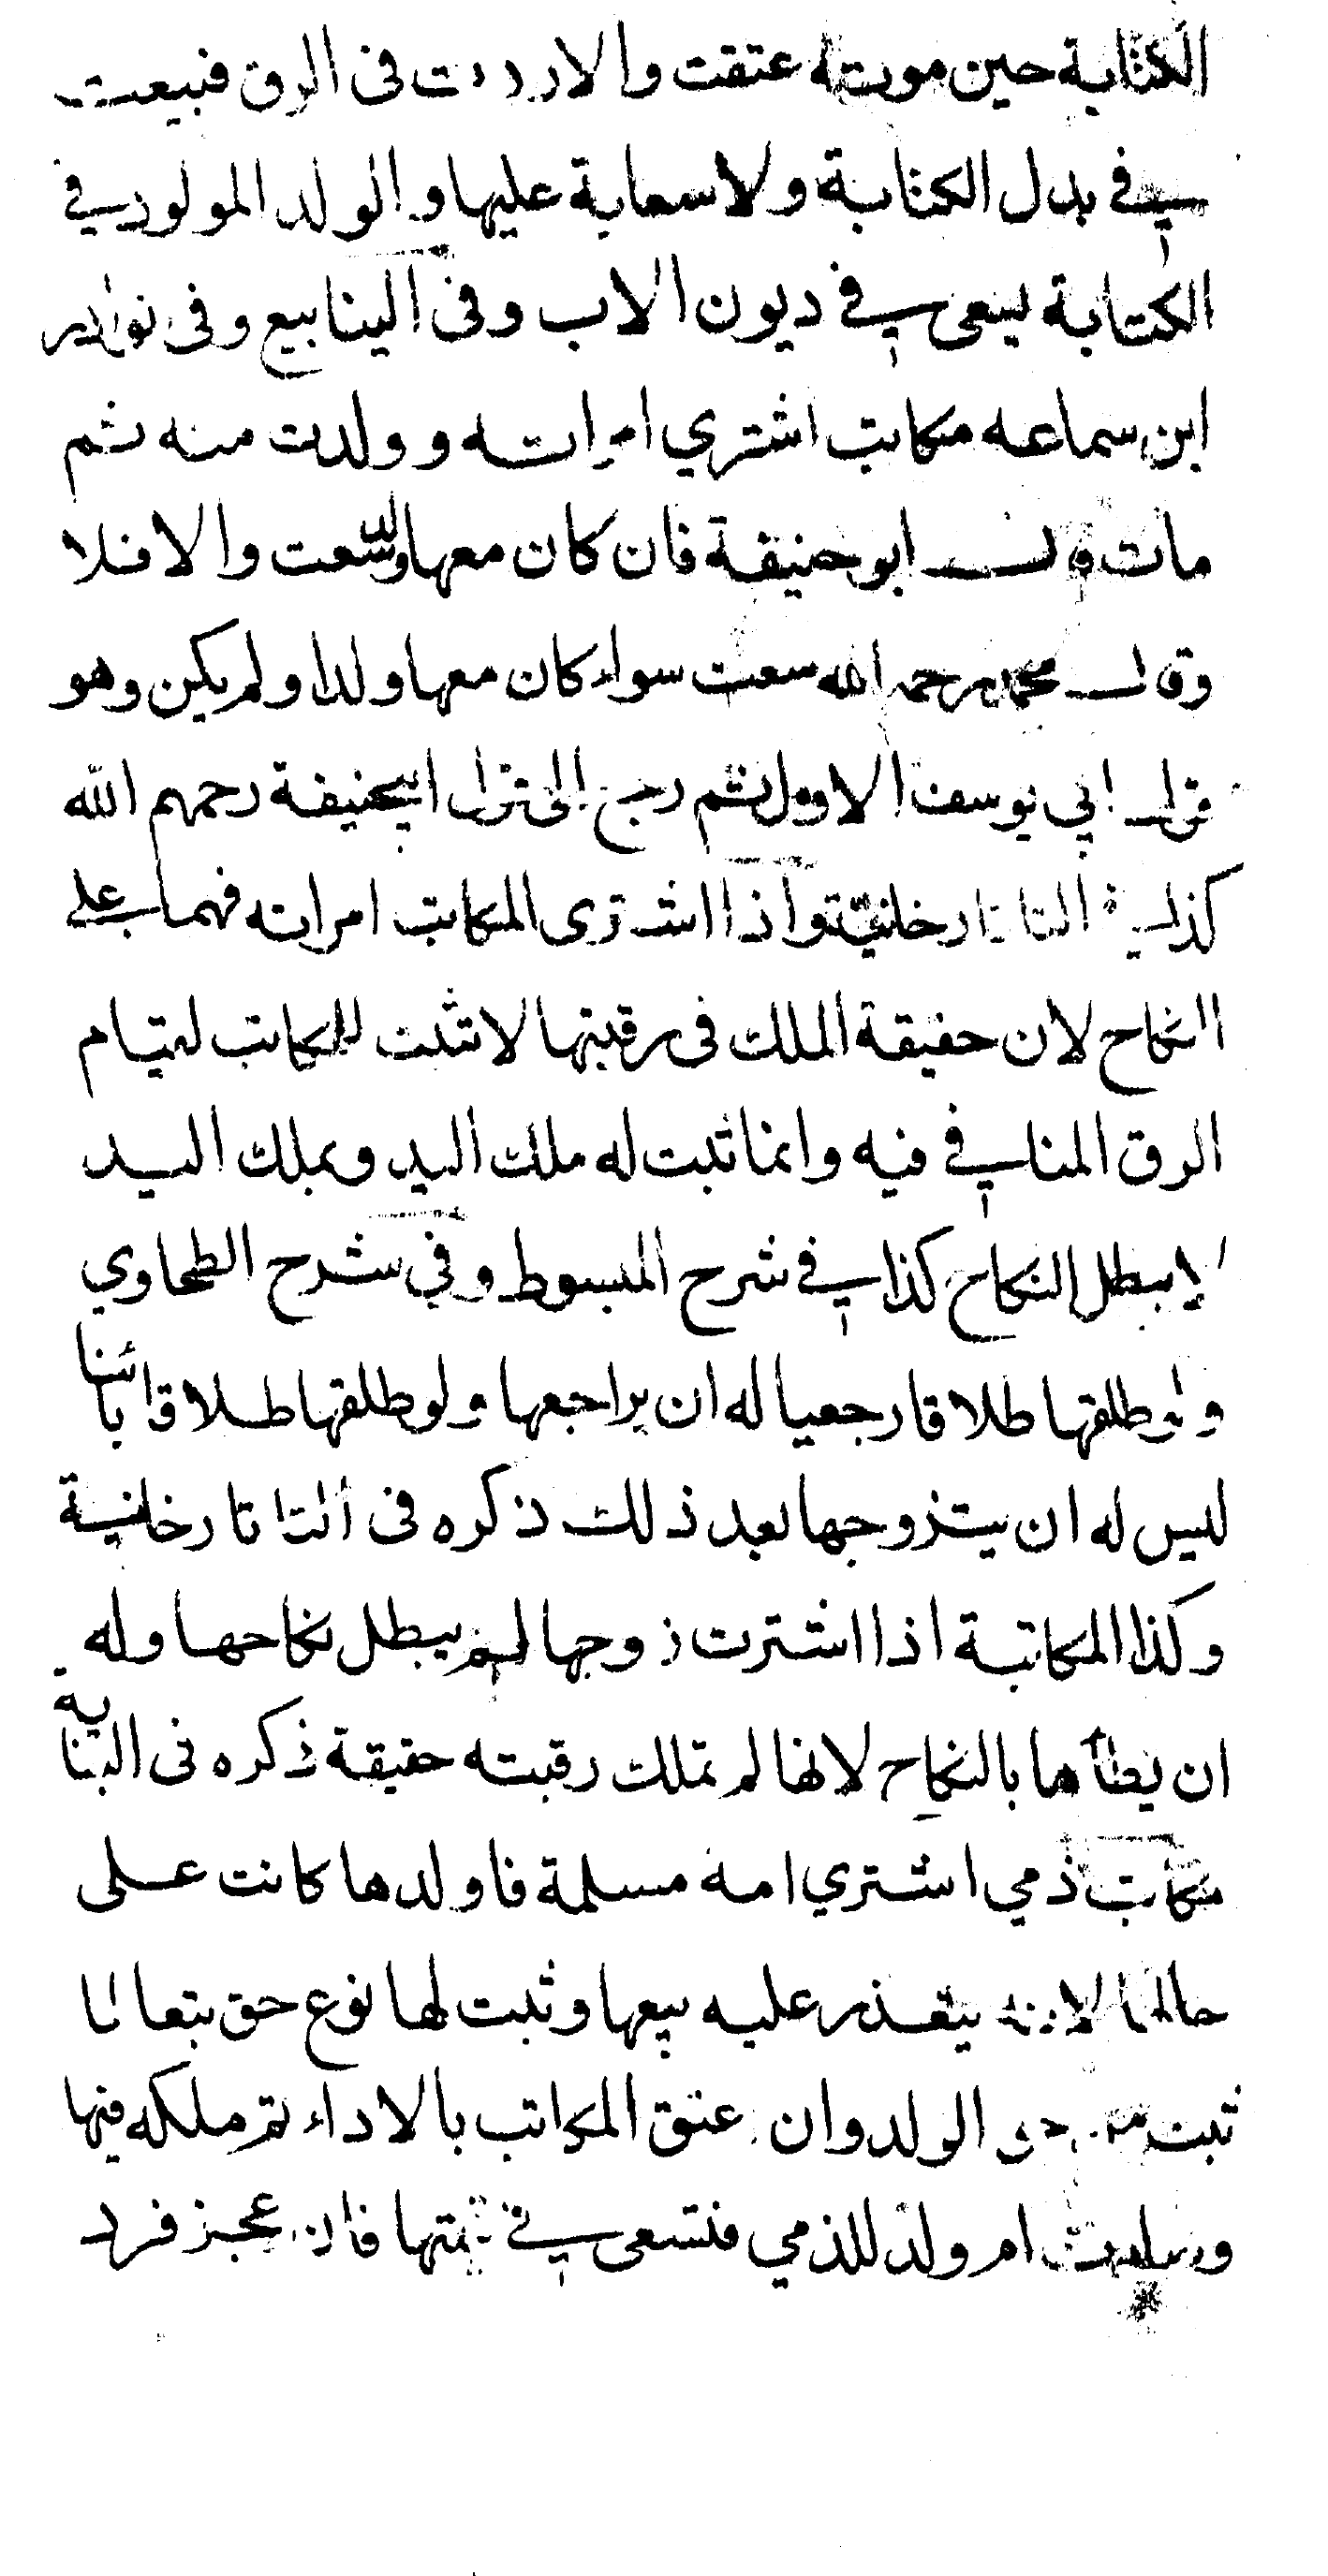 الكتابة حين موته عتقت والا ردت فى الرق فبيعت
في بدل الكتابة ولا سعاية عليها والولد المولود في
الكتابة يسعى في ديون الاب وفى الينابيع وفى نوادر
ابن سماعه مكاتب اشتري امراته وولدت منه ثم
مات قال ابو حنيفة فان كان معها ولد سعت والا فلا
وقال محمد رحمه الله سعت سواء كان معها ولد او لم يكن وهو
قول ابي يوسف الاول ثم رجع الى قول ابيحنيفة رحمهم الله
كذا في التاتارخانية واذا اشترى المكاتب امراته فهما على
النكاح لان حقيقة الملك فى رقبتها لا تثبت للمكاتب لقيام
الرق المنافي فيه وانما ثبت له ملك اليد وبملك اليد
لا يبطل النكاح كذا في شرح المبسوط وفي شرح الطحاوي
ولو طلقها طلاقا رجعيا له ان يراجعها ولو طلقها طلاقا بائنا
ليس له ان يتزوجها بعد ذلك ذكره فى التاتارخانية
وكذا المكاتبة اذا اشترت زوجها لم يبطل نكاحها وله
ان يطأها بالنكاح لانها لم تملك رقبته حقيقة ذكره فى البناية
مكاتب ذمي اشتري امة مسلمة فاولدها كانت على
حالها لانه يتعذر عليه بيعها وثبت لها نوع حق تبعا لما
ثبت من حق الولد وان عتق المكاتب بالاداء تم ملكه فيها
وصارت ام ولد للذمي فتسعى في قيمتها فان عجز فرد